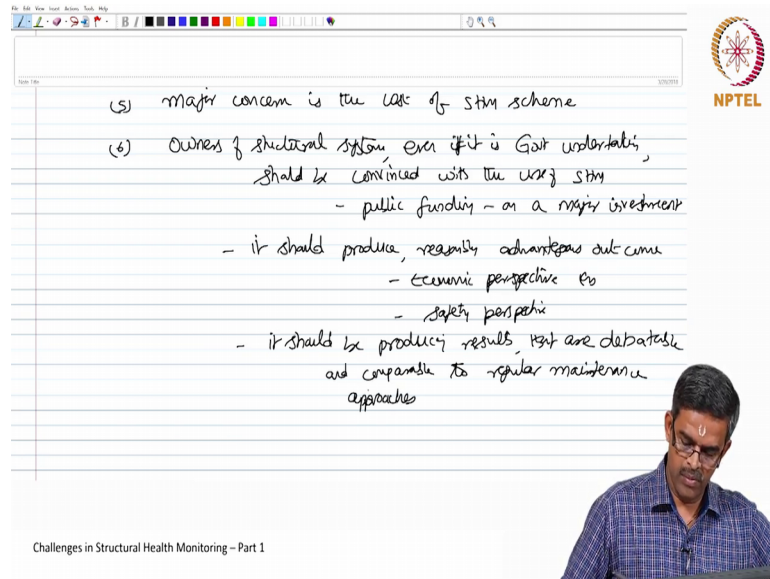 File Edit View Insert Actions Tools Help
B I
Note Title
3/20/2018
NPTEL
(5) major concern is the cost of SHM scheme
(6) Owners of structural system, even if it is Govt undertaking,
should be convinced with the use of SHM
- public funding - on a major investment
- it should produce, reasonably advantageous outcome
- Economic perspective &
- safety perspective
- it should be producing results, that are debatable
and comparable to regular maintenance
approaches
Challenges in Structural Health Monitoring – Part 1